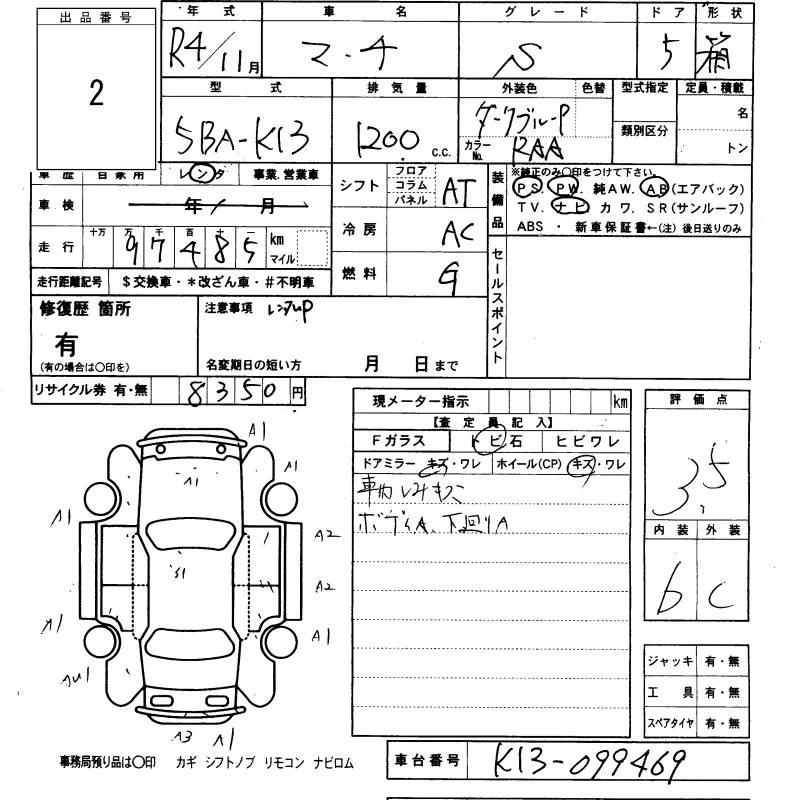 出品番号
2
年式 車名 グレード ドア 形状
R4/11月 マーチ S 5 箱
型式 排気量 外装色 色替 型式指定 定員・積載
5BA-K13 1200 c.c. ダークブルーP
カラーNo. RAA 類別区分 名
トン
車歴 自家用 レンタ 事業.営業車
車検 年 月
走行 十万 万 千 百 十 一
97485 km マイル
走行距離記号 $交換車・*改ざん車・#不明車
シフト フロア コラム パネル AT
冷房 AC
燃料 G
装備品 ※純正のみ○印をつけて下さい。
PS PW. 純AW. AB(エアバック)
TV. ナビ カワ. SR(サンルーフ)
ABS ・ 新車保証書←(注) 後日送りのみ
セールスポイント
修復歴 箇所
有
(有の場合は○印を)
注意事項 レンタup
名変期日の短い方 月 日まで
リサイクル券 有・無 8350円
現メーター指示 km
【査定員記入】
Fガラス トビ石 ヒビワレ
ドアミラー キズ・ワレ ホイール(CP) キズ・ワレ
車内シミキズ
ボディA、下回りA
評価点
3.5
内装 外装
b C
ジャッキ 有・無
工具 有・無
スペアタイヤ 有・無
A1
A1
A1
A1
A2
S1
A2
A1
A1
A3 A1
事務局預り品は○印 カギ シフトノブ リモコン ナビロム
車台番号 K13-099469